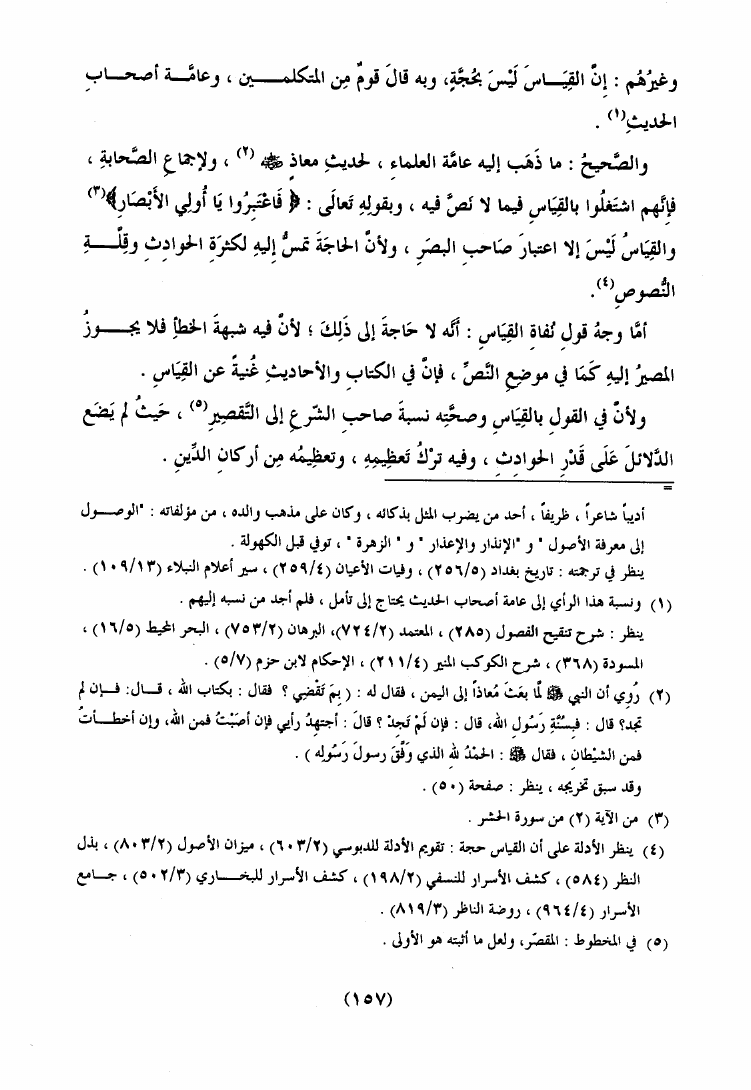 وغيرُهُم : إنَّ القِيَاسَ لَيْسَ بحُجَّةٍ، وبه قالَ قومٌ مِن المتكلمين ، وعامَّة أصحابِ
الحديثِ(١) .
والصَّحيحُ : ما ذَهَب إليه عامَّة العلماء ، لحديثِ معاذٍ ﷺ (٢) ، ولإجماعِ الصَّحابةِ ،
فإنَّهم اشتغلُوا بالقِيَاسِ فيما لا نَصَّ فيه ، وبقولِهِ تعَالَى : ﴿ فَاعْتَبِرُوا يَا أُولِي الأَبْصَارِ﴾(٣)
والقِيَاسُ لَيْسَ إلا اعتبارَ صَاحبِ البصَرِ ، ولأنَّ الحاجَةَ تمسُّ إليهِ لكثرَةِ الحوادِثِ وقِلَّةِ
النُّصوصِ(٤).
أمَّا وجهُ قولِ نُفاةِ القِيَاسِ : أنَّه لا حَاجةَ إلى ذَلِكَ ؛ لأنَّ فيه شبهةَ الخطأِ فلا يجوزُ
المصيرُ إليهِ كَمَا في موضعِ النَّصِّ ، فإنَّ في الكتابِ والأحاديثِ غُنيةً عن القِيَاسِ .
ولأنَّ في القولِ بالقِيَاسِ وصحَّتِه نسبةَ صاحبِ الشرعِ إلى التَّقصيرِ(٥) ، حَيثُ لم يَضَع
الدَّلائلَ عَلَى قَدْرِ الحوادِثِ ، وفيه تركُ تَعظِيمِهِ ، وتعظِيمُه مِن أركان الدِّينِ .
=
أديباً شاعراً ، ظريفاً ، أحد من يضرب المثل بذكائه ، وكان على مذهب والده ، من مؤلفاته : "الوصول
إلى معرفة الأصول " و "الإنذار والإعذار " و " الزهرة " ، توفي قبل الكهولة .
ينظر في ترجمته : تاريخ بغداد (٢٥٦/٥) ، وفيات الأعيان (٢٥٩/٤) ، سير أعلام النبلاء (١٠٩/١٣) .
(١) ونسبة هذا الرأي إلى عامة أصحاب الحديث يحتاج إلى تأمل ، فلم أجد من نسبه إليهم .
ينظر : شرح تنقيح الفصول (٢٨٥) ، المعتمد (٧٢٤/٢)، البرهان (٧٥٣/٢) ، البحر المحيط (١٦/٥) ،
المسودة (٣٦٨) ، شرح الكوكب المنير (٢١١/٤) ، الإحكام لابن حزم (٥/٧) .
(٢) رُوِي أن النبي ﷺ لَّا بعَثَ مُعاذاً إلى اليمن ، فقال له : ( بِمَ تَقْضِي ؟ فقال : بكتاب الله ، قال: فإن لم
تجد؟ قال : فبِسُنَّةِ رَسُول الله، قال : فإن لَمْ تجدْ ؟ قالَ : أجتهدُ رأيي فإن أصَبْتُ فمن الله، وإن أخطأتُ
فمن الشيْطانِ ، فقال ﷺ : الحمْدُ للهِ الذي وَفَّقَ رسولَ رَسُولِه ) .
وقد سبق تخريجه ، ينظر : صفحة (٥٠) .
(٣) من الآية (٢) من سورة الحشر .
(٤) ينظر الأدلة على أن القياس حجة : تقويم الأدلة للدبوسي (٦٠٣/٢) ، ميزان الأصول (٨٠٣/٢) ، بذل
النظر (٥٨٤) ، كشف الأسرار للنسفي (١٩٨/٢) ، كشف الأسرار للبخاري (٥٠٢/٣) ، جامع
الأسرار (٩٦٤/٤) ، روضة الناظر (٨١٩/٣) .
(٥) في المخطوط : المقصّر، ولعل ما أثبته هو الأولى .
(١٥٧)